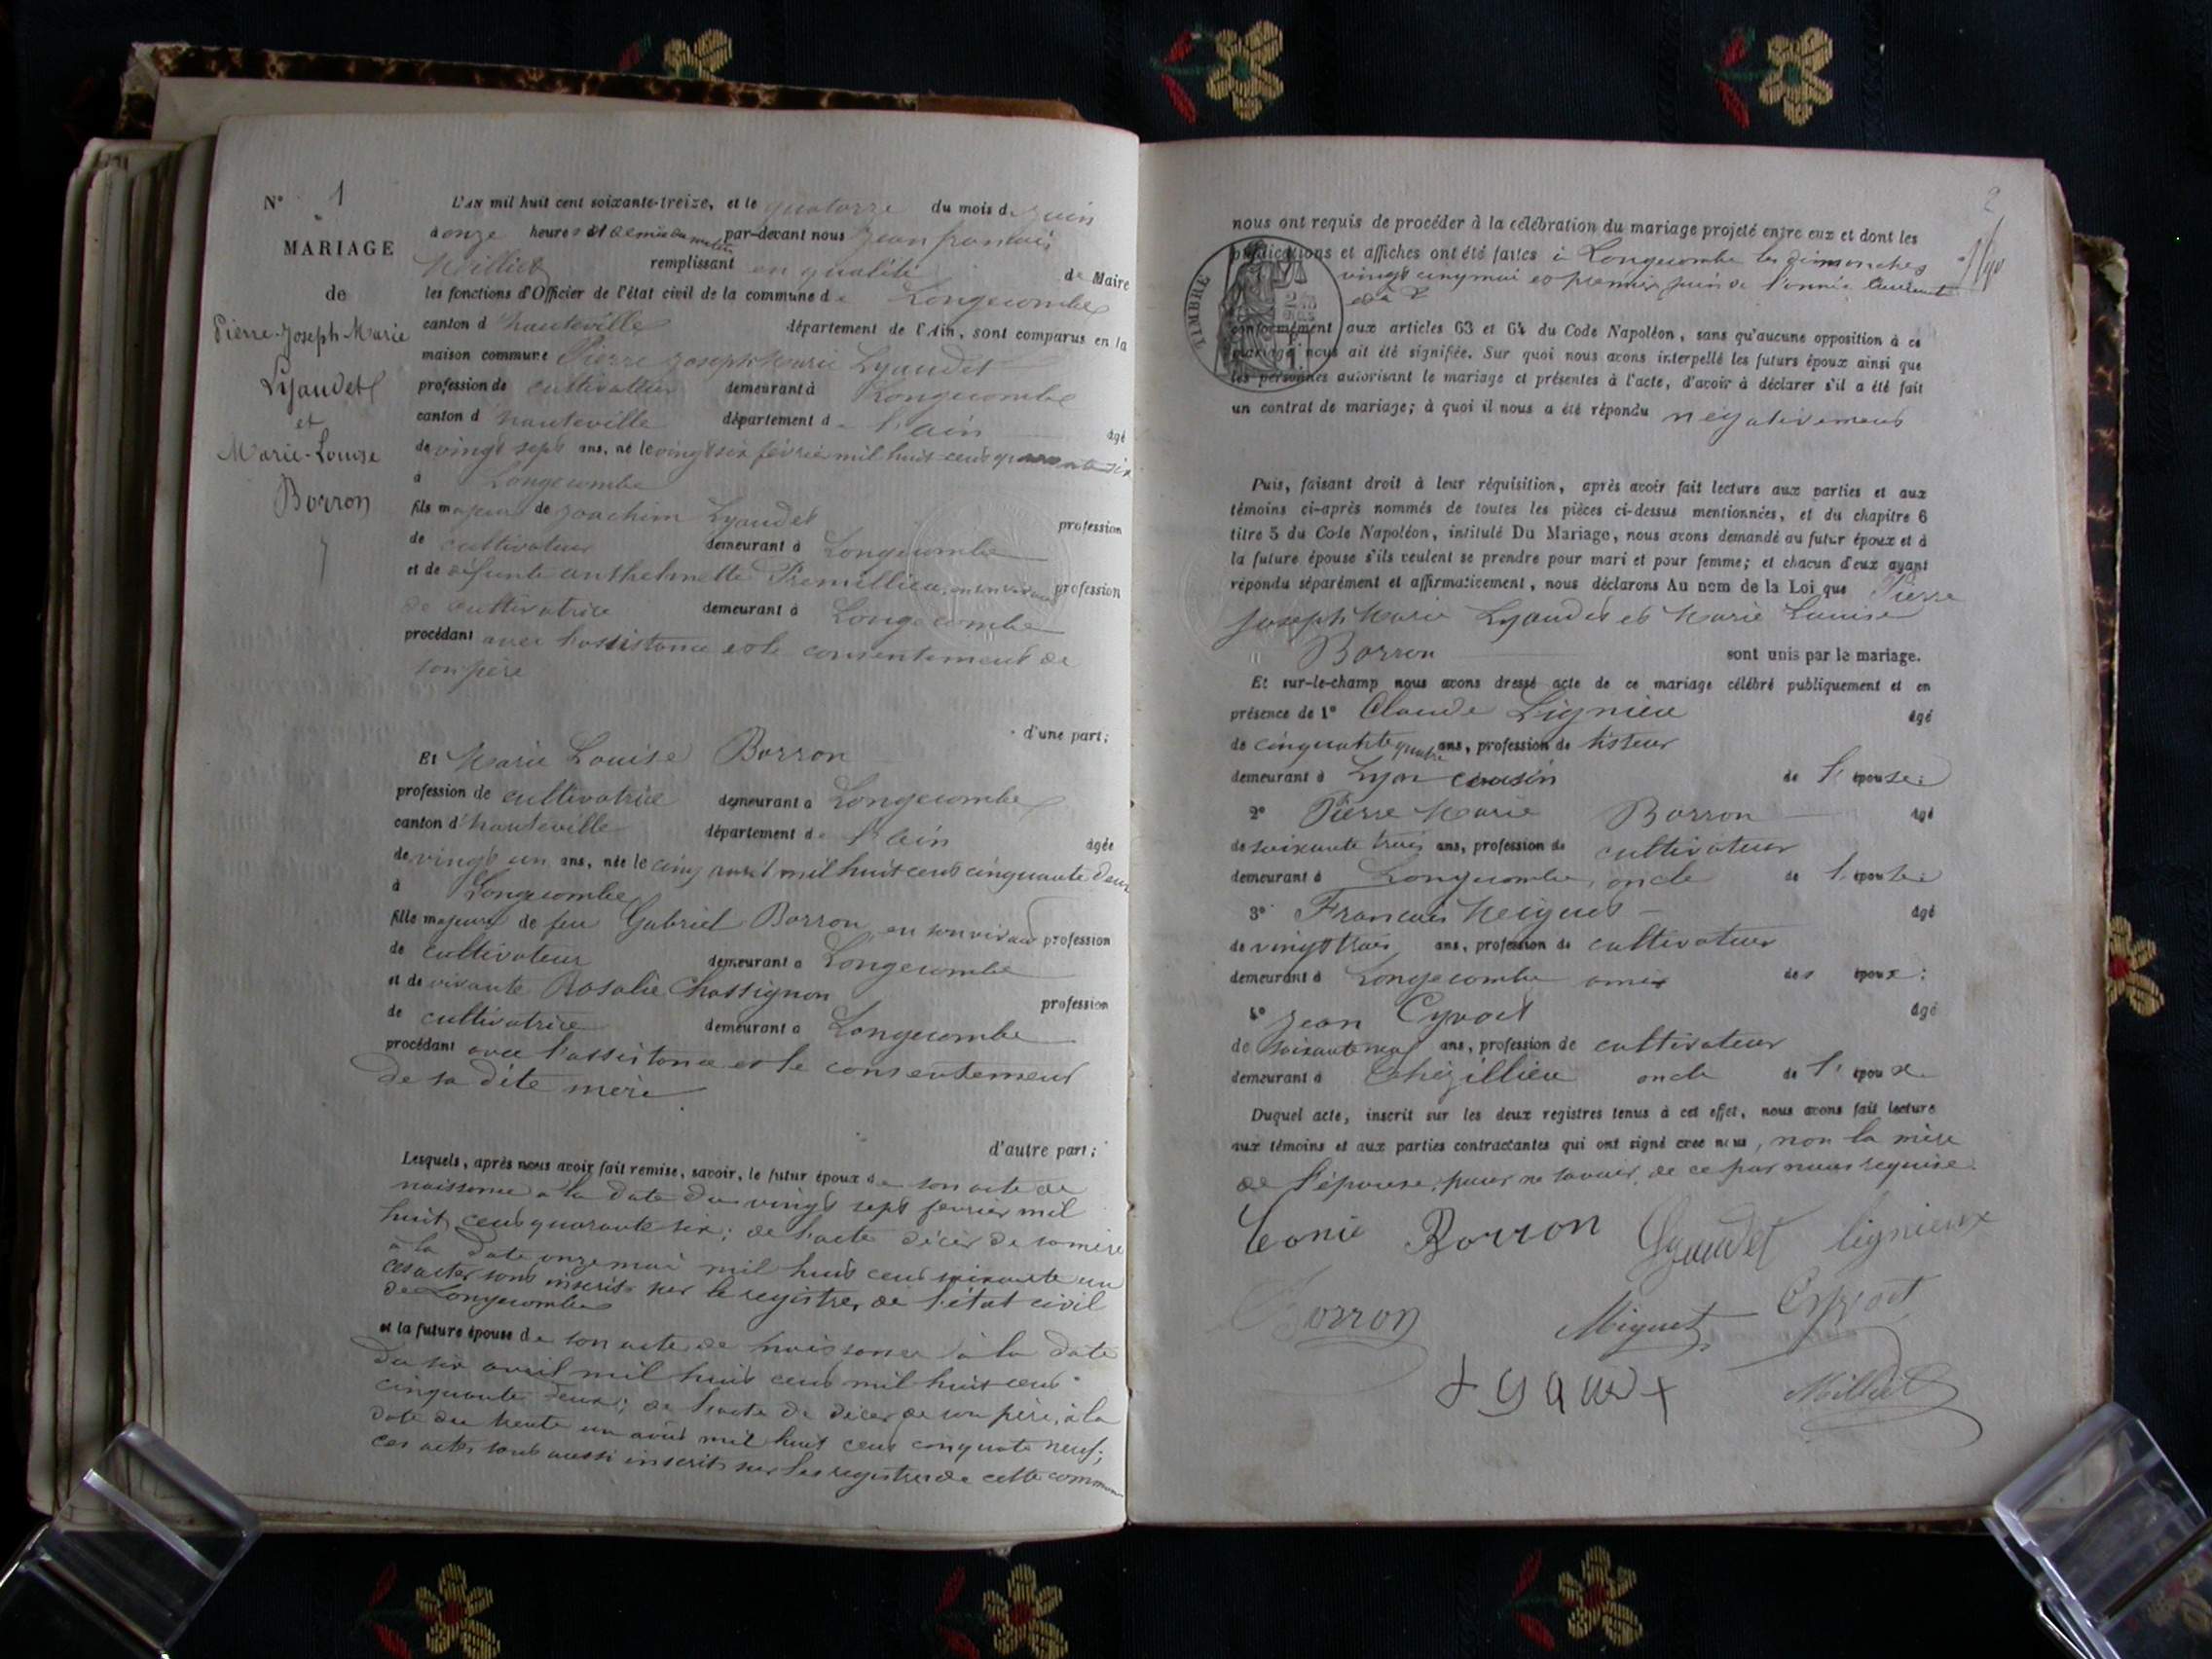 N° 1
MARIAGE
de
Pierre-Joseph-Marie
Lyaudet
et
Marie-Louise
Borron
L'AN mil huit cent soixante-treize, et le quatorze du mois de juin
à onze heures et demie du matin par-devant nous Jean francois
Milliet remplissant en qualité de Maire
les fonctions d'Officier de l'état civil de la commune de Longecombe
canton d hauteville département de l'Ain, sont comparus en la
maison commune Pierre Joseph Marie Lyaudet
profession de cultivateur demeurant à Longecombe
canton d hauteville département de l'ain âgé
de vingt sept ans, né le vingt six février mil huit cent quarante six
à Longecombe
fils majeur de Joachim Lyaudet profession
de cultivateur demeurant à Longecombe
et de défunte anthelmette Premillieu, en son vivant profession
de cultivatrice demeurant à Longecombe
procédant avec l'assistance et le consentement de
son père
d'une part;
Et Marie Louise Borron
profession de cultivatrice demeurant à Longecombe
canton d'hauteville département de l'ain âgée
de vingt un ans, née le cinq avril mil huit cent cinquante deux
à Longecombe
fille majeure de feu Gabriel Borron en son vivant profession
de cultivateur demeurant à Longecombe
et de vivante Rosalie Chassignon profession
de cultivatrice demeurant à Longecombe
procédant avec l'assistance et le consentement
de sa dite mère
d'autre part;
Lesquels, après nous avoir fait remise, savoir, le futur époux de son acte de
naissance à la date du vingt sept fevrier mil
huit cent quarante six; de l'acte décès de sa mère
à la date onze mai mil huit cent soixante un
ces actes sont inscrits sur le registre, de l'état civil
de Longecombe
et la future épouse de son acte de naissance à la date
du six avril mil huit cent mil huit cent
cinquante deux; de l'acte de décès de son père, à la
date du trente un août mil huit cent cinquate neuf;
ces actes sont aussi inscrits sur les registres de cette commune
2
nous ont requis de procéder à la célébration du mariage projeté entre eux et dont les
publications et affiches ont été faites à Longecombe les dimanches
vingt cinq mai et premier juin de l'année courante
TIMBRE
conformément aux articles 63 et 64 du Code Napoléon, sans qu'aucune opposition à ce
mariage nous ait été signifiée. Sur quoi nous avons interpellé les futurs époux ainsi que
les personnes autorisant le mariage et présentes à l'acte, d'avoir à déclarer s'il a été fait
un contrat de mariage; à quoi il nous a été répondu négativement
Puis, faisant droit à leur réquisition, après avoir fait lecture aux parties et aux
témoins ci-après nommés de toutes les pièces ci-dessus mentionnées, et du chapitre 6
titre 5 du Code Napoléon, intitulé Du Mariage, nous avons demandé au futur époux et à
la future épouse s'ils veulent se prendre pour mari et pour femme; et chacun d'eux ayant
répondu séparément et affirmativement, nous déclarons Au nom de la Loi que Pierre
Joseph Marie Lyaudet et Marie Louise
Borron sont unis par le mariage.
Et sur-le-champ nous avons dressé acte de ce mariage célébré publiquement et en
présence de 1° Claude Lignieu âgé
de cinquante quatre ans, profession de tisseur
demeurant à Lyon cousin de l'épouse;
2° Pierre Marie Borron âgé
de soixante trois ans, profession de cultivateur
demeurant à Longecombe, oncle de l'épouse
3° Francois Meignet âgé
de vingt trois ans, profession de cultivateur
demeurant à Longecombe amis des époux;
4° Jean Cyvoct âgé
de soixante neuf ans, profession de cultivateur
demeurant à Chézillieu oncle de l'époux
Duquel acte, inscrit sur les deux registres tenus à cet effet, nous avons fait lecture
aux témoins et aux parties contractantes qui ont signé avec nous, non la mère
de l'épouse, pour ne savoir, de ce par nous requise.
Borron Lyaudet lignieux
Borron Miguet Cyvoct
Milliet